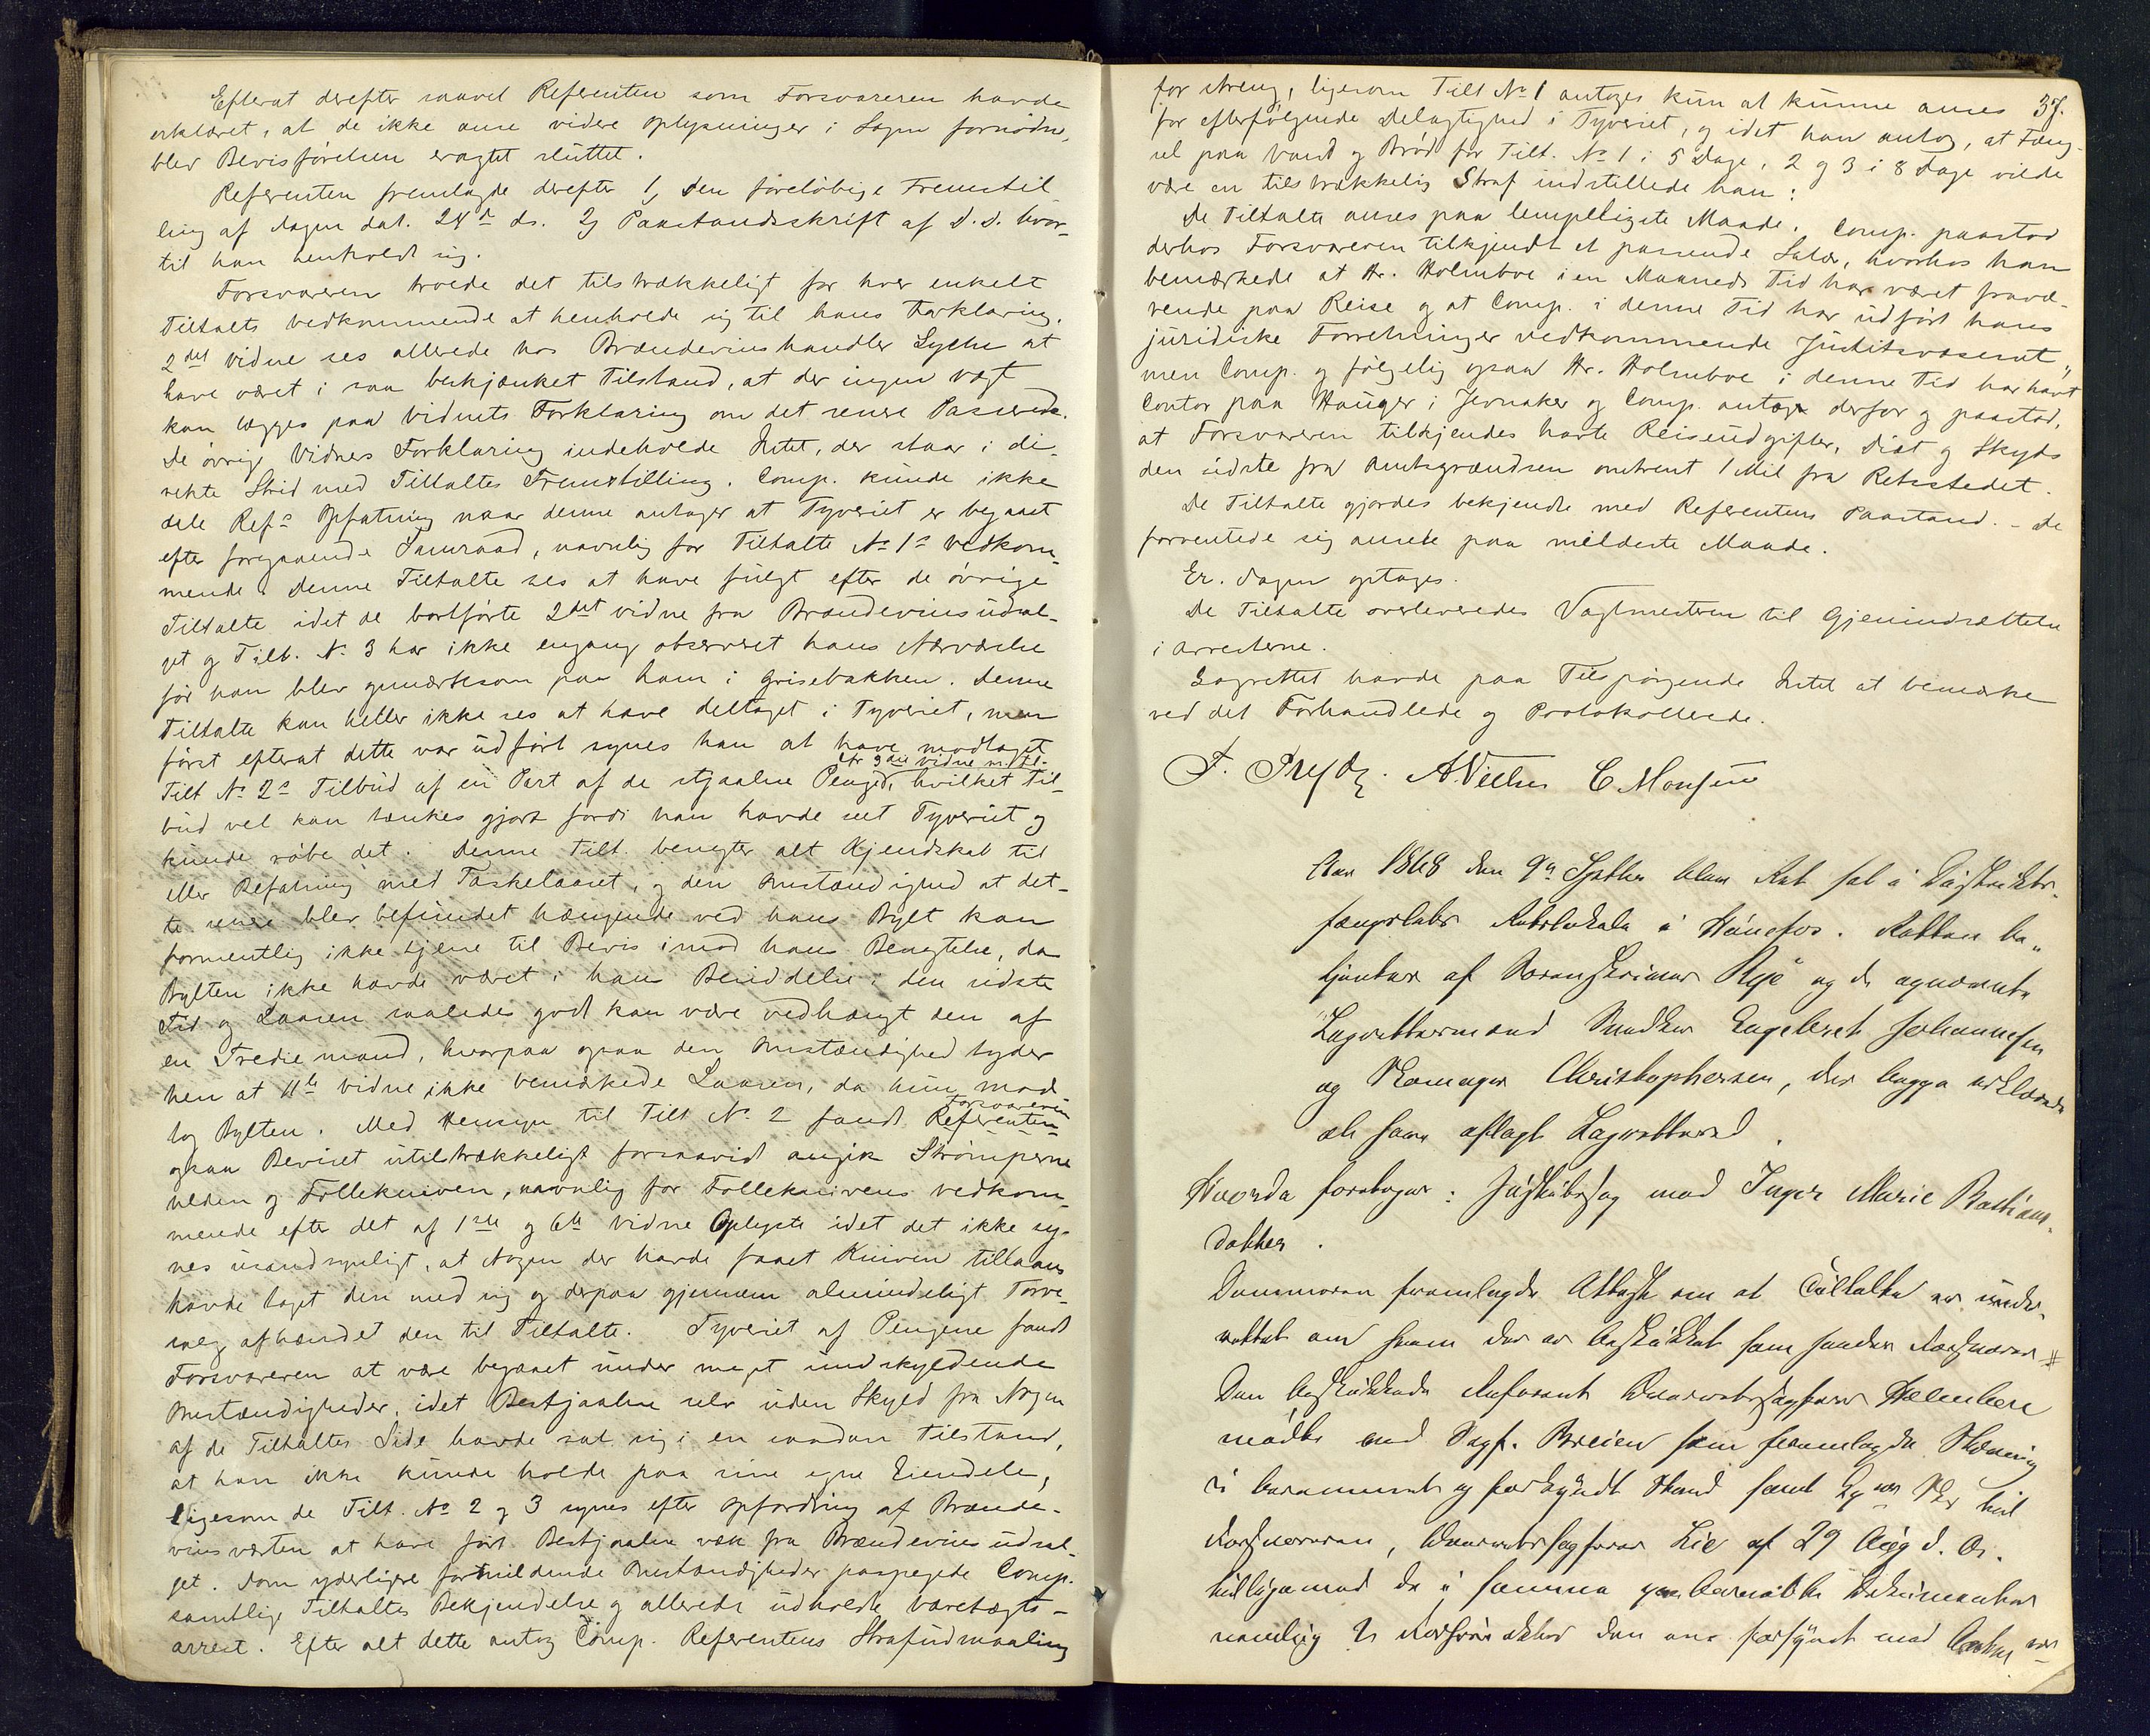 Efterat derefter saavel Referenten som Forsvareren havde
erklæret, at de ikke anse videre Oplysninger i Sagen fornødne,
blev Bevisførelsen eragtet sluttet.
Referenten fremlagde derefter 1, den foreløbige Fremstil-
ling af Sagen dat. 24de ds. 2, Paastandsskrift af D. D. hvor-
til han henholdt sig.
Forsvareren troede det tilstrækkeligt for hver enkelt
Tiltalts Vedkommende at henholde sig til hans Forklaring.
2det Vidne ses allerede hos Brændevinshandler Lyche at
have været i saa beskjænket Tilstand, at der ingen Vægt
kan lægges paa Vidnets Forklaring om det senere Passerede.
De øvrige Vidners Forklaring indeholde Intet, der staar i di-
rekte Strid med Tiltaltes Fremstilling. Comp. kunde ikke
dele Refs Opfatning naar denne antager at Tyveriet er begaaet
efter foregaaende Samraad, navnlig for Tiltalte No 1s Vedkom-
mende. Denne Tiltalte ses at have fulgt efter de øvrige
Tiltalte idet de bortførte 2det Vidne fra Brændevinsudsal-
get og Tilt. No 3 har ikke engang observeret hans Nærværelse
før han blev opmærksom paa ham i Grisebakken. Denne
Tiltalte kan heller ikke ses at have deltaget i Tyveriet, men
først efterat dette var udført synes han at have modtaget
cfr 3die Vidne
Tilt No 2s Tilbud af en Part af de stjaalne Penge, hvilket Til-
bud vel kan tænkes gjort fordi han havde seet Tyveriet og
kunde røbe det. Denne Tilt. benegter alt Kjendskab til
eller Befatning med Taskelaaset, og den Omstændighed at det-
te senere blev befundet hængende ved hans Bylt kan
formentlig ikke tjene til Bevis imod hans Benegtelse, da
Bylten ikke havde været i hans Besiddelse i den sidste
Tid og Laasen saaledes godt kan være vedhængt den af
en Tredie mand, hvorpaa ogsaa den Omstændighed tyder
hen at 11te Vidne ikke bemærkede Laasen, da hun mod-
Forsvareren
tog Bylten. Med Hensyn til Tilt No 2 fandt Referenten
ogsaa Beviset utilstrækkeligt forsaavidt angik Strømperne
Ulden og Follekniven, navnlig for Folleknivens Vedkom-
mende efter det af 1ste og 6te Vidne Oplyste idet det ikke sy-
nes usandsynligt, at Nogen der havde faaet Kniven tillaans
havde taget den med sig og derpaa gjennem almindeligt Torve-
salg afhændet den til Tiltalte. Tyveriet af Pengene fandt
Forsvareren at være begaaet under meget undskyldende
Omstændigheder, idet Bestjaalne selv uden Skyld fra Nogen
af de Tiltaltes Side havde sat sig i en saadan Tilstand,
at han ikke kunde holde paa sine egne Eiendele,
ligesom de Tilt. No 2 og 3 synes efter Opfordring af Brænde-
vinsværten at have ført Bestjaalne væk fra Brændevinsudsal-
get. Som yderligere formildende Omstændigheder paapegede Comp.
samtlige Tiltaltes Bekjendelse og allerede udholdte Varetægts-
arrest. Efter alt dette antog Comp. Referentens Strafudmaaling
37.
for streng, ligesom Tilt No 1 antoges kun at kunne anses
for efterfølgende Delagtighed i Tyveriet, og idet han antog, at Fæng-
sel paa Vand og Brød for Tilt. No 1 i 5 Dage, 2 og 3 i 8 Dage vilde
være en tilstrækkelig Straf indstillede han:
De Tiltalte anses paa lempeligste Maade. Comp. paastod
derhos Forsvareren tilkjendt et passende Salær, hvorhos han
bemærkede at Hr. Holmboe i en Maaneds Tid har været fravæ-
rende paa Reise og at Comp. i denne Tid har udført hans
juridiske Forretninger vedkommende Justitsvæsenet
men Comp. og følgelig ogsaa Hr. Holmboe i denne Tid har havt
Contor paa Hauger i Jevnaker og Comp. antager derfor og paastod,
at Forsvareren tilkjendes havte Reiseudgifter, Diæt og Skyds
den sidste fra Amtsgrændsen omtrent 1 Mil fra Retsstedet.
De Tiltalte gjordes bekjendt med Referentens Paastand. - De
forventede sig ansete paa mildeste Maade.
Er. Sagen optages.
De Tiltalte overleveredes Vagtmesteren til Gjenindsættelse
i Arresterne.
Lagrettet havde paa Tilspørgende Intet at bemærke
ved det Forhandlede og Protokollerede.
F. Prydz. C Monsen
Aar 1868 den 9de Septbr blev Ret sat i Distrikts-
fængslets Retslokale i Hønefos. Retten be-
tjentes af Sorenskriver Rye og de opnævnte
Lagrettesmænd Snedker Engebret Johannesen
og Skomager Christophersen, der begge erklærede
at have aflagt Lagretteed.
Hvorda foretoges: Justitssag mod Inger Marie Bastians-
datter.
Dommeren fremlagde Attest om at Tiltalte er under-
rettet om hvem der er beskikket som hendes Forsvarer #
Den beskikkede Referent Overretssagfører Holmboe
mødte ved Sagf. Breien som fremlagde Stævning
i beramment og forkyndt Stand samt
Forsvareren, Overretssagfører Lie af 29 Aug d. A.
tilligemed de i samme paaberaabte Dokumenter
nemlig 1,